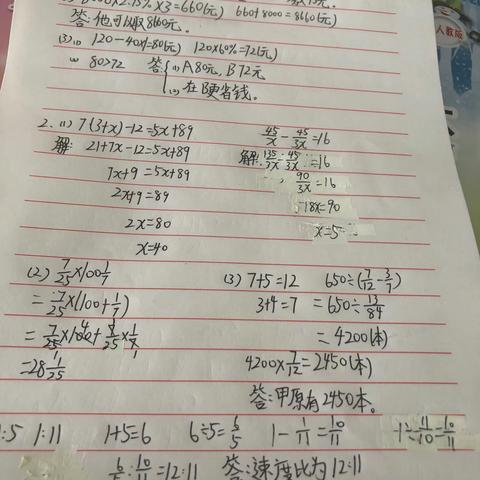 ×3=660(元) 660+8000=8660(元)
答:他可以取8660元。
人教版
(3)(1) 120-40×1=80(元) 120×60%=72(元)
(2) 80>72 答:(1) A 80元, B 72元
(2) 在B更省钱。
2. (1) 7(3+x)-12=5x+89
解: 21+7x-12=5x+89
7x+9=5x+89
2x+9=89
2x=80
x=40
45/x - 45/3x =16
解: 135/3x - 45/3x =16
90/3x =16
18x=90
x=5
(2) 7/25×100 1/7
= 7/25×(100+1/7)
= 7/25×100+7/25×1/7
=28 1/25
(3) 7+5=12 650÷(7/12-3/7)
3+4=7 =650÷13/84
=4200(本)
4200×7/12=2450(本)
答:甲原有2450本。
:5 1:11 1+5=6 6÷5=6/5 1-1/11=10/11 1÷11/10=10/11
6/5:10/11=12:11 答:速度比为12:11